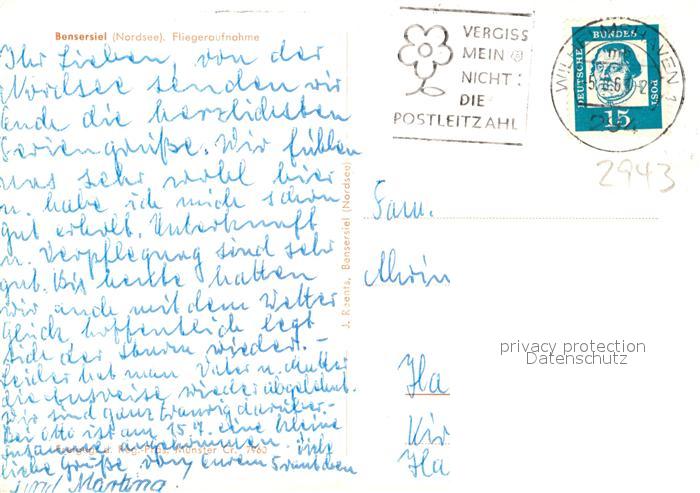 Bensersiel (Nordsee). Fliegeraufnahme
Ihr Lieben, von der
Nordsee senden wir
Euch die herzlichsten
Feriengrüße. Wir fühlen
uns sehr wohl hier
u. habe ich mich schon
gut erholt. Unterkunft
u. Verpflegung sind sehr
gut. Bis heute hatten
wir auch mit dem Wetter
Glück, hoffentlich legt
sich der Sturm wieder. -
Leider hat man Vater u. Mutter
die Ausreise wieder abgelehnt.
Wir sind ganz traurig darüber. -
Bei Otto ist am 15.7. eine kleine
Susanne angekommen. Viele
liebe Grüße von Eurem
und Martina.
J. Roents, Bensersiel (Nordsee)
VERGISS
MEIN
NICHT:
DIE
POSTLEITZAHL
DEUTSCHE
BUNDES
POST
15
2943
Fam.
privacy protection
Datenschutz
Ha
Kir
Ha